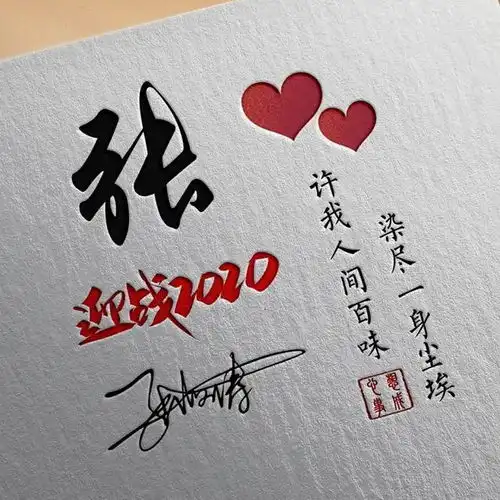 张
迎战2020
许我人间百味
染尽一身尘埃
心想事成